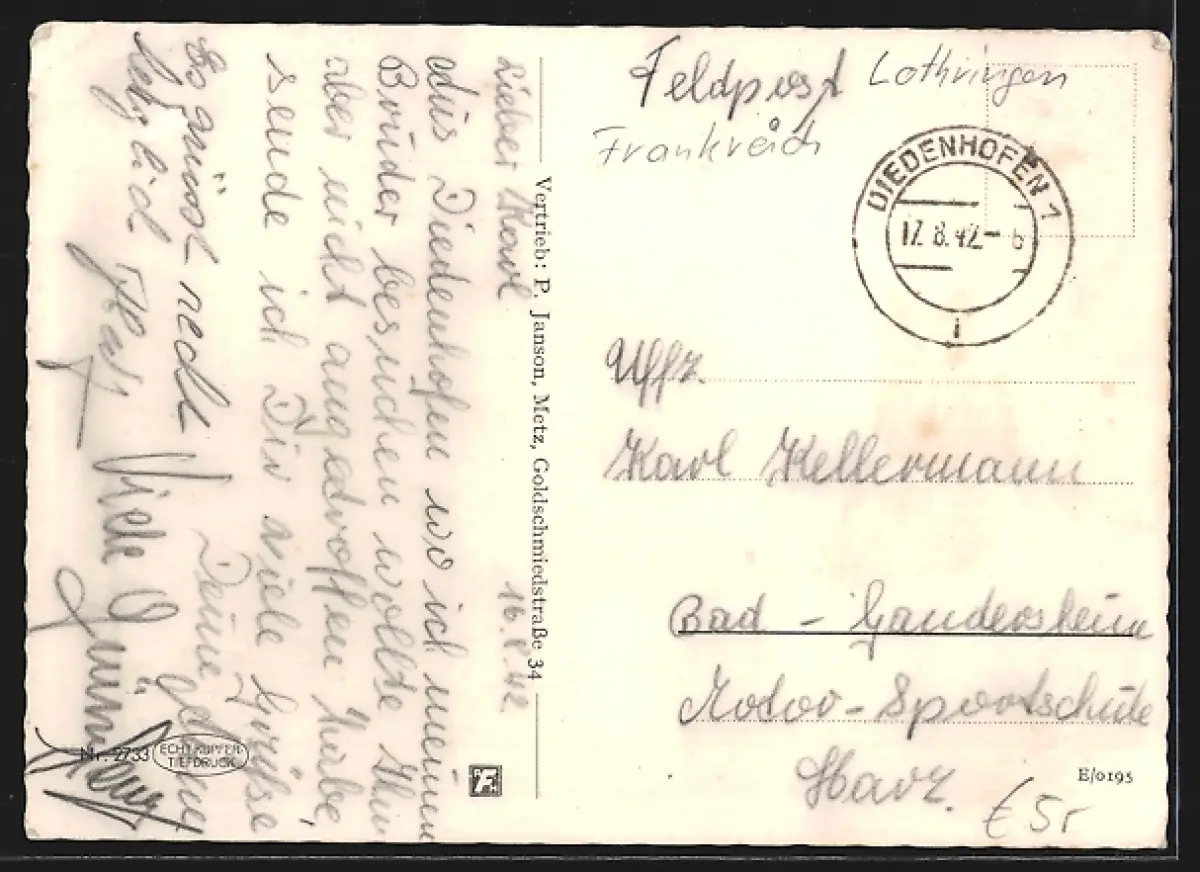 Feldpost Lothringen
Frankreich
DIEDENHOFEN 1
17.8.42-
i
Uffz.
Karl Kellermann
Bad - Gandersheim
Motor-Sportschule
Harz.
E/0195
Vertrieb: P. Janson, Metz, Goldschmiedstraße 34
16.8.42.
Lieber Karl
Aus Diedenhofen wo ich meinen
Bruder besuchen wollte ihn
aber nicht angedroffen habe,
sende ich Dir viele Grüße
Es grüßt recht
Deine
herzlich
Viele
Nr. 2733
ECHT KUPFER-
TIEFDRUCK